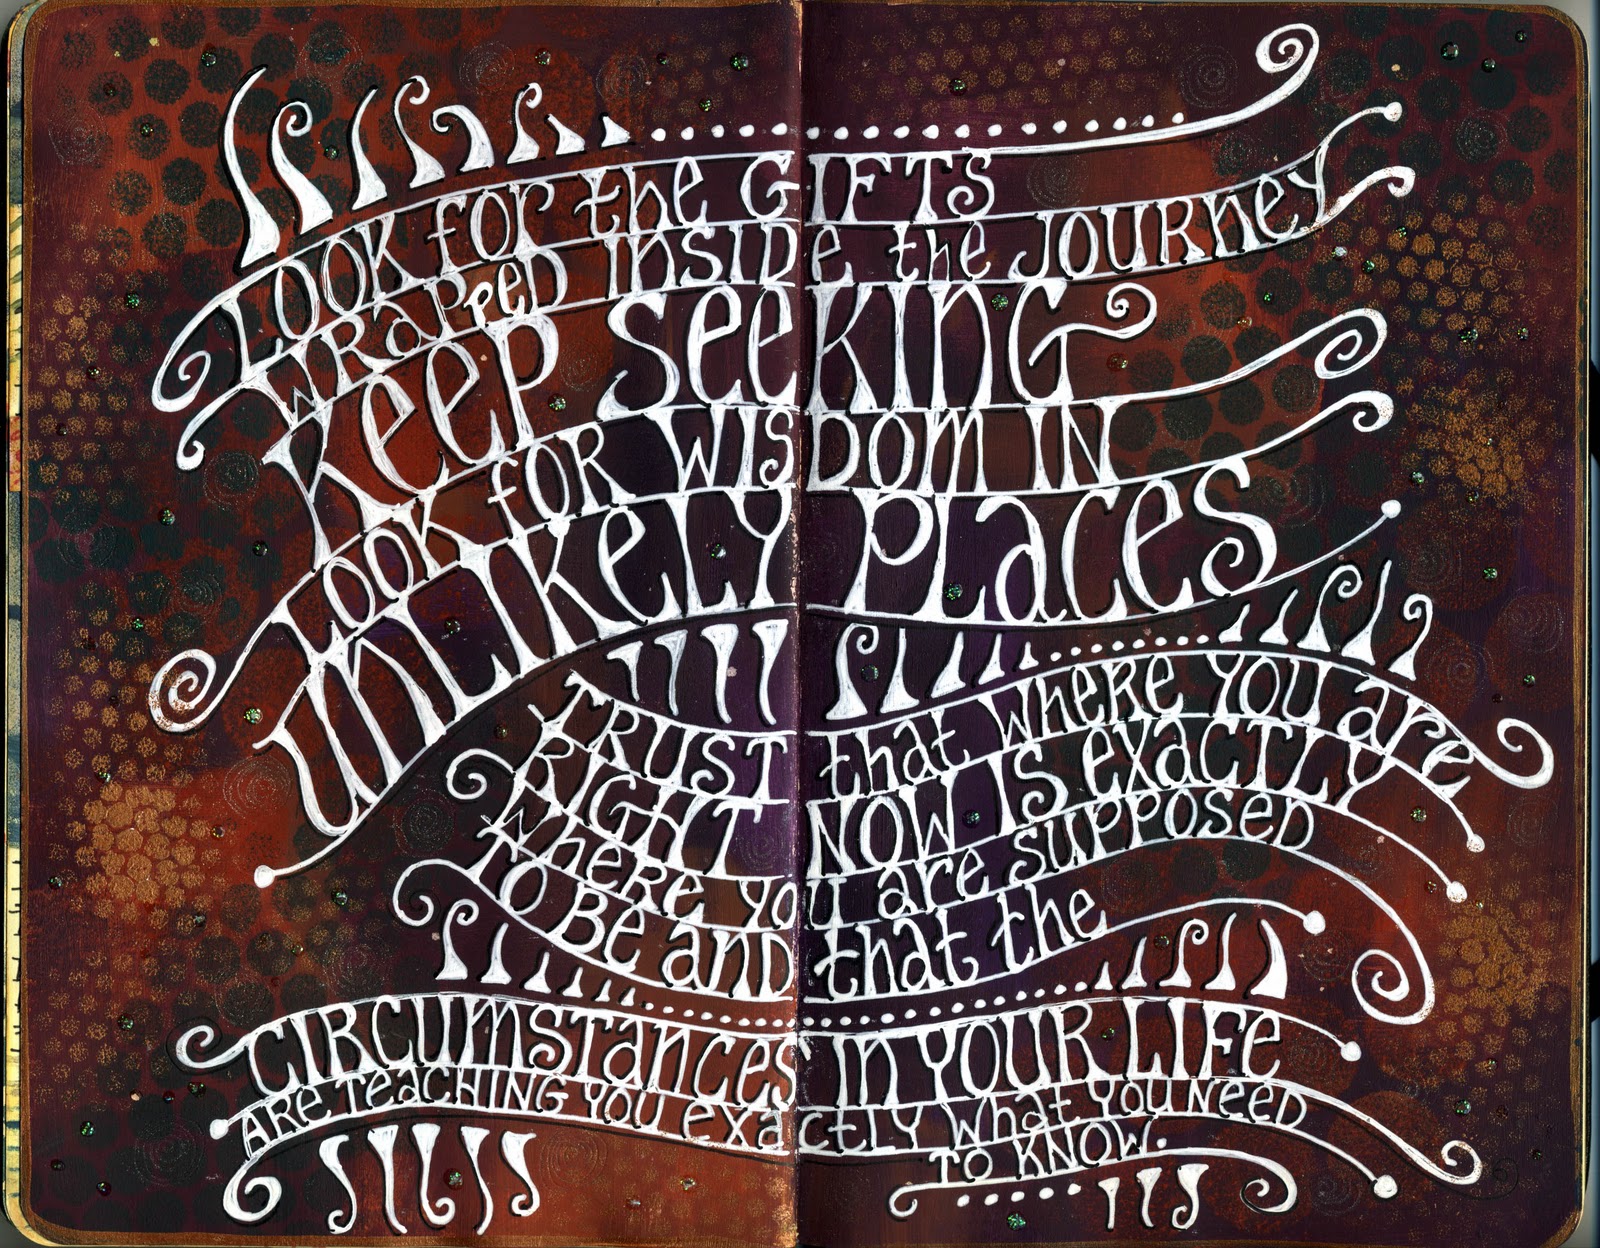 LOOK for the GIFTS
WRaPPeD INSIDe the JOURNeY
KeeP SeeKING
LOOK fOR WISDOM IN
UNLIKeLY PLaCeS
TRUST that wheRe YOU aRe
RIGHT NOW IS exaCTLY
wheRe YOU aRe SUPPOSeD
TO Be anD that the
CIRCUMSTaNCeS IN YOUR LIFe
ARe TeaCHING YOU exactLY what YOU NeeD
TO KNOW.